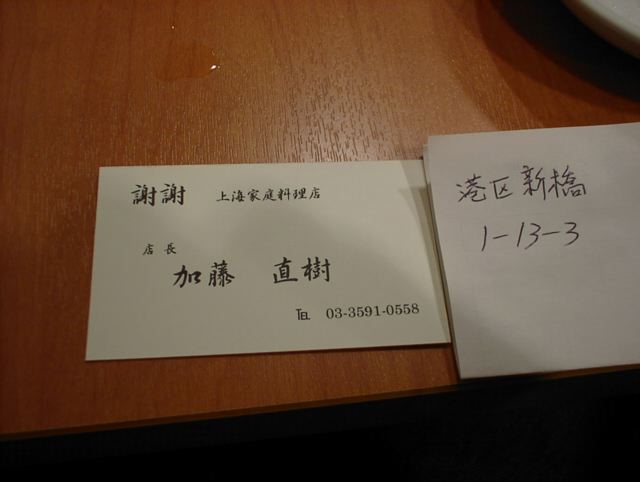 謝謝 上海家庭料理店
店長
加藤 直樹
℡ 03-3591-0558
港区新橋
1-13-3